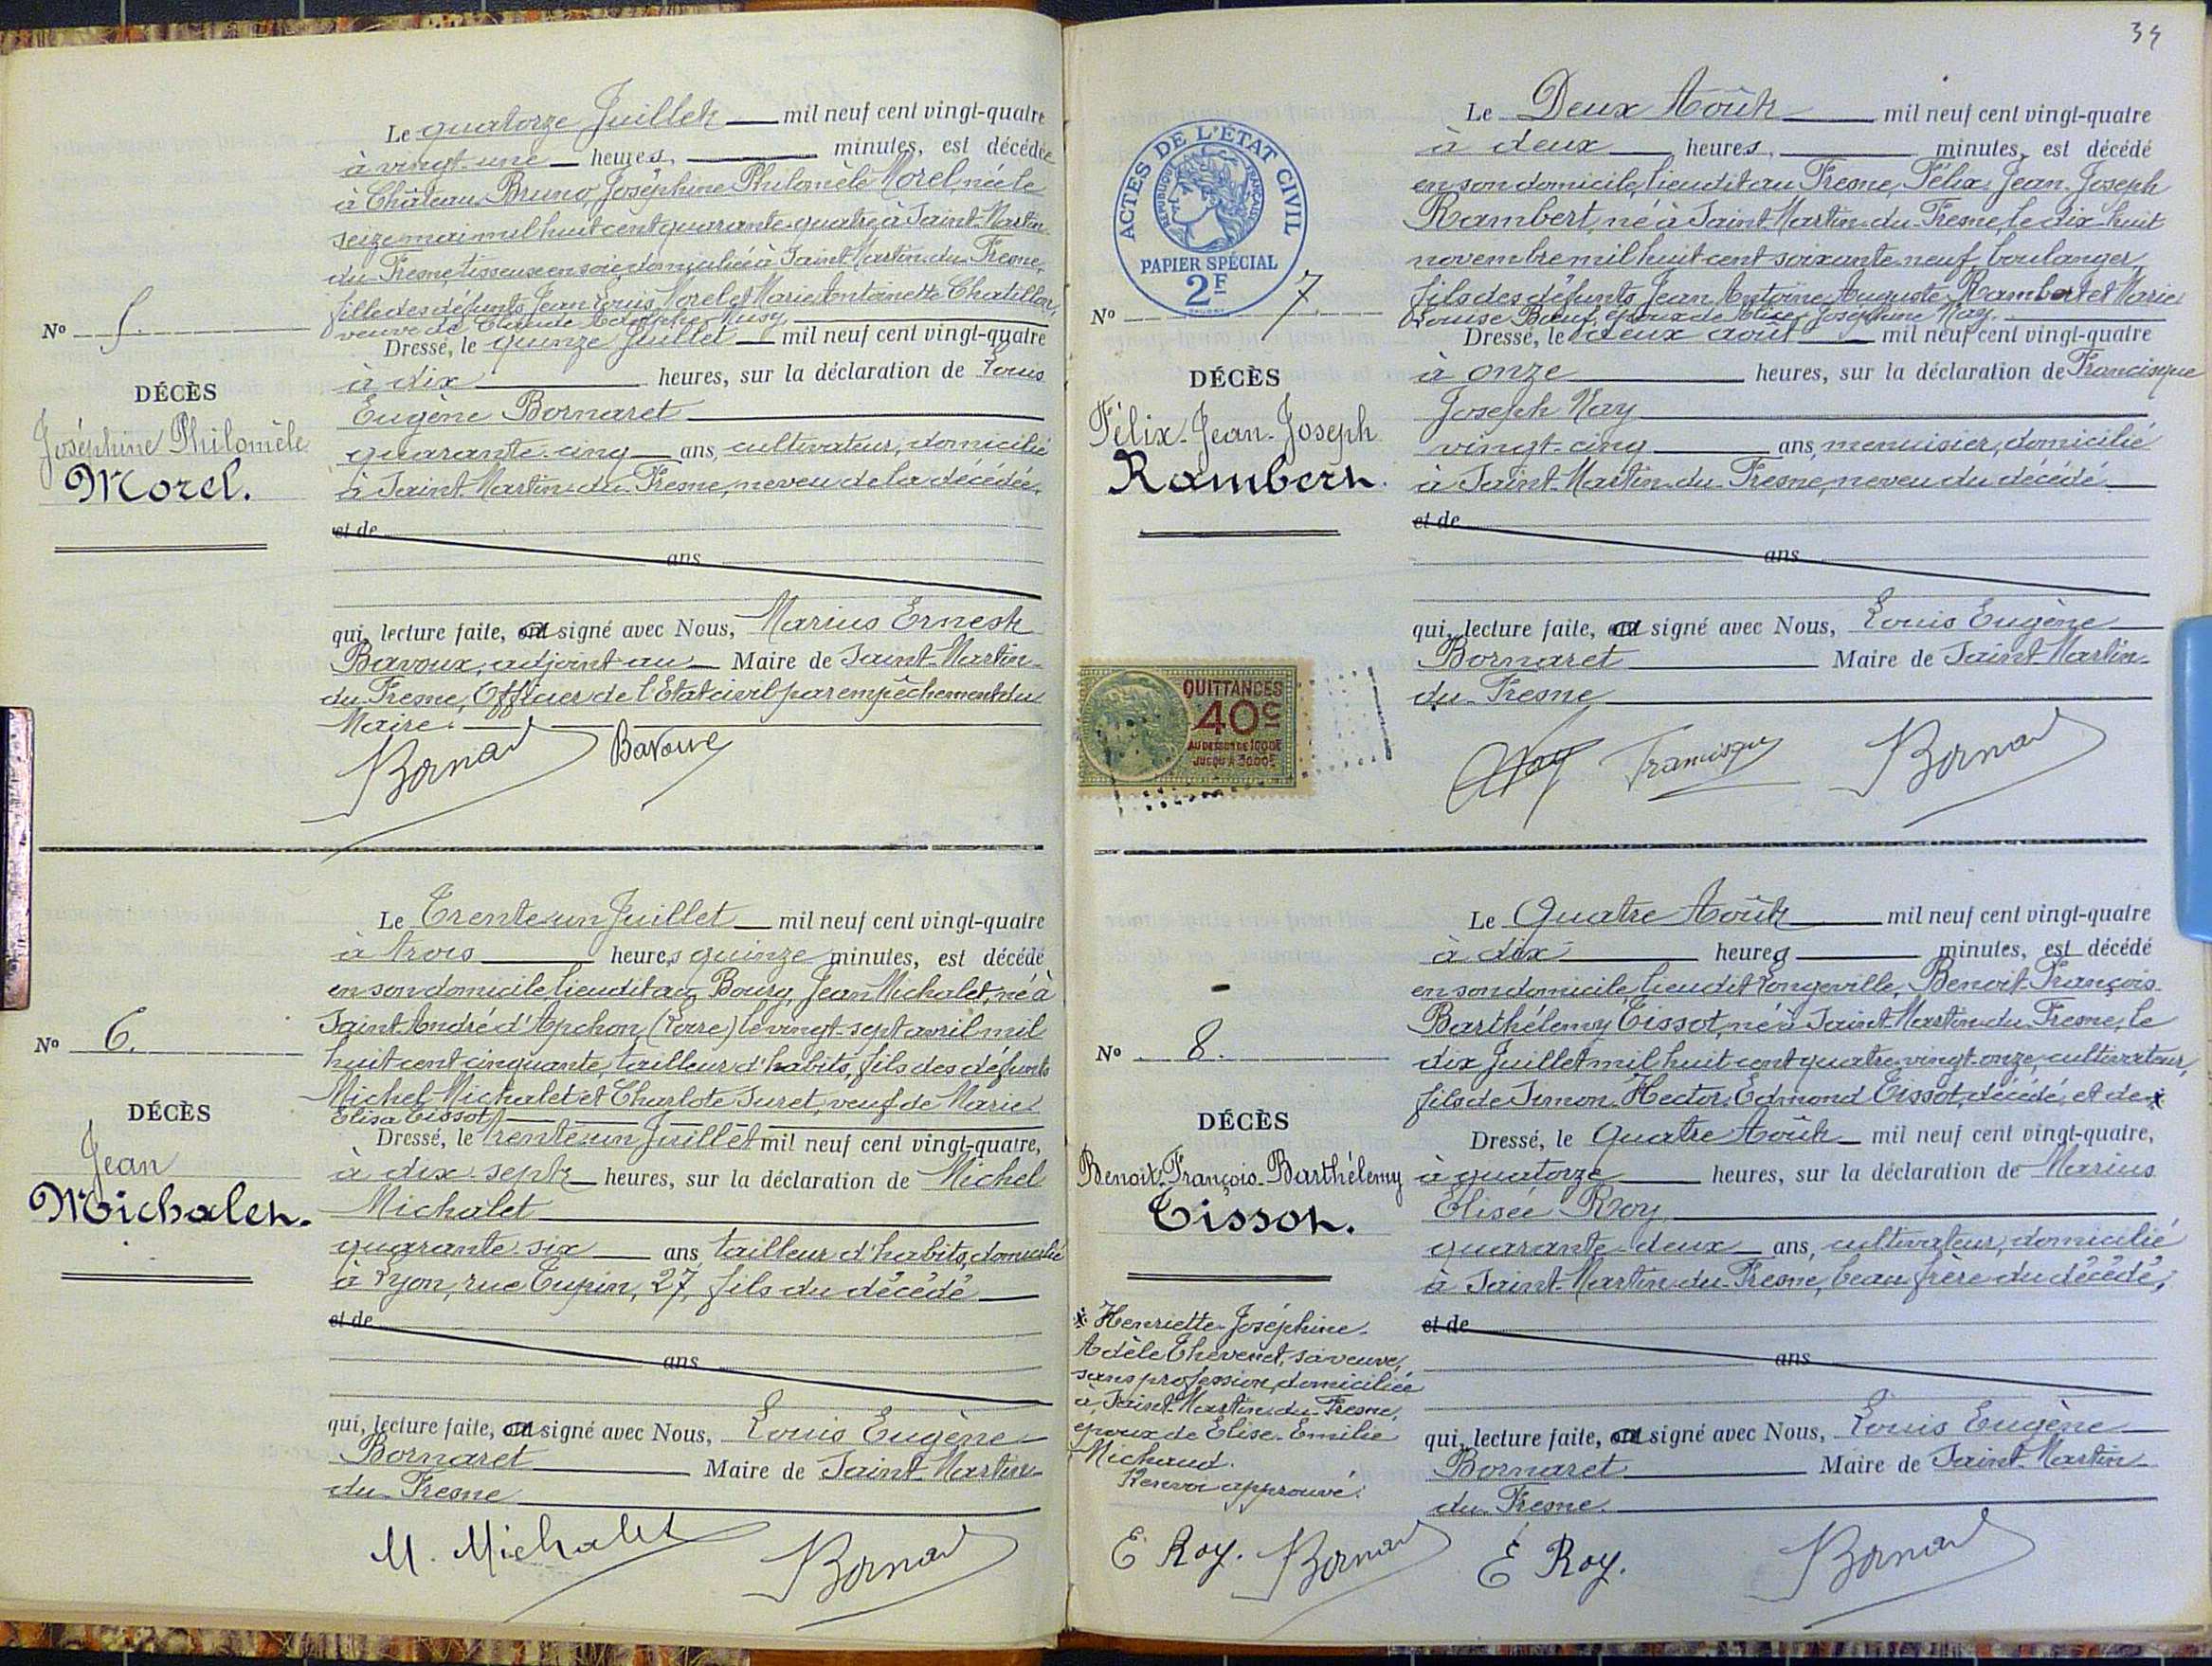 Le quatorze Juillet mil neuf cent vingt-quatre
à vingt-une heures, minutes, est décédée
à Château Bruno, Joséphine Philomèle Morel née le
seize mai mil huit cent quarante-quatre, à Saint-Martin-
du-Fresne, tisseuse en soie, domiciliée à Saint-Martin-du-Fresne,
fille des défunts Jean Louis Morel et Marie Antoinette Chatillon,
veuve de Claude Adolphe Musy
Nº 5.
DÉCÈS
Joséphine Philomèle
Morel.
Dressé, le quinze Juillet mil neuf cent vingt-quatre
à dix heures, sur la déclaration de Louis
Eugène Bornaret
quarante-cinq ans, cultivateur, domicilié
à Saint-Martin-du-Fresne, neveu de la décédée,
et de
ans
qui, lecture faite, a signé avec Nous, Marius Ernest
Bavoux, adjoint au Maire de Saint-Martin-
du-Fresne, Officier de l'Etat civil par empêchement du
Maire.
Bornaret Bavoux
Le Trente-un Juillet mil neuf cent vingt-quatre
à trois heures quinze minutes, est décédé
en son domicile lieu dit au Bourg, Jean Michalet, né à
Saint André d'Apchon (Loire) le vingt-sept avril mil
huit cent cinquante, tailleur d'habits, fils des défunts
Michel Michalet et Charlote Suret, veuf de Marie
Elisa Tissot
Nº 6.
DÉCÈS
Jean
Michalet.
Dressé, le trente-un Juillet mil neuf cent vingt-quatre,
à dix-sept heures, sur la déclaration de Michel
Michalet
quarante-six ans, tailleur d'habits, domicilié
à Lyon, rue Tupin, 27, fils du décédé
et de
ans
qui, lecture faite, a signé avec Nous, Louis Eugène
Bornaret Maire de Saint-Martin-
du-Fresne
M. Michalet Bornaret
34
ACTES DE L'ÉTAT CIVIL
RÉPUBLIQUE FRANÇAISE
PAPIER SPÉCIAL
2F
Le Deux Août mil neuf cent vingt-quatre
à deux heures, minutes, est décédé
en son domicile, lieu dit au Fresne, Félix-Jean-Joseph
Rambert, né à Saint-Martin-du-Fresne, le dix-huit
novembre mil huit cent soixante-neuf, boulanger,
fils des défunts Jean Antoine Auguste Rambert et Marie
Louise Bœuf, époux de Elise Joséphine Nay.
Nº 7
DÉCÈS
Félix-Jean-Joseph
Rambert.
Dressé, le deux août mil neuf cent vingt-quatre
à onze heures, sur la déclaration de Francisque
Joseph Nay
vingt-cinq ans, menuisier, domicilié
à Saint-Martin-du-Fresne, neveu du décédé
et de
ans
qui, lecture faite, a signé avec Nous, Louis Eugène
Bornaret Maire de Saint-Martin-
du-Fresne
QUITTANCES
40c
AU DESSUS DE 1000F
JUSQU'A 3000F
Nay Francisque Bornaret
Le Quatre Août mil neuf cent vingt-quatre
à dix heures minutes, est décédé
en son domicile, lieu dit Longeville, Benoit-François-
Barthélemy Tissot, né à Saint-Martin-du-Fresne, le
dix Juillet mil huit cent quatre-vingt-onze, cultivateur,
fils de Simon-Hector-Edmond Tissot, décédé, et de *
Nº 8.
DÉCÈS
Benoit-François-Barthélemy
Tissot.
Dressé, le Quatre Août mil neuf cent vingt-quatre,
à quatorze heures, sur la déclaration de Marius
Elisée Roy
quarante-deux ans, cultivateur, domicilié
à Saint-Martin-du-Fresne, beau-frère du décédé,
et de
ans
qui, lecture faite, a signé avec Nous, Louis Eugène
Bornaret Maire de Saint-Martin-
du-Fresne.
* Henriette-Joséphine-
Adèle Thévenet, sa veuve,
sans profession, domiciliée
à Saint-Martin-du-Fresne,
époux de Elise-Emilie
Michaud.
Renvoi approuvé.
E Roy. Bornaret
E Roy. Bornaret